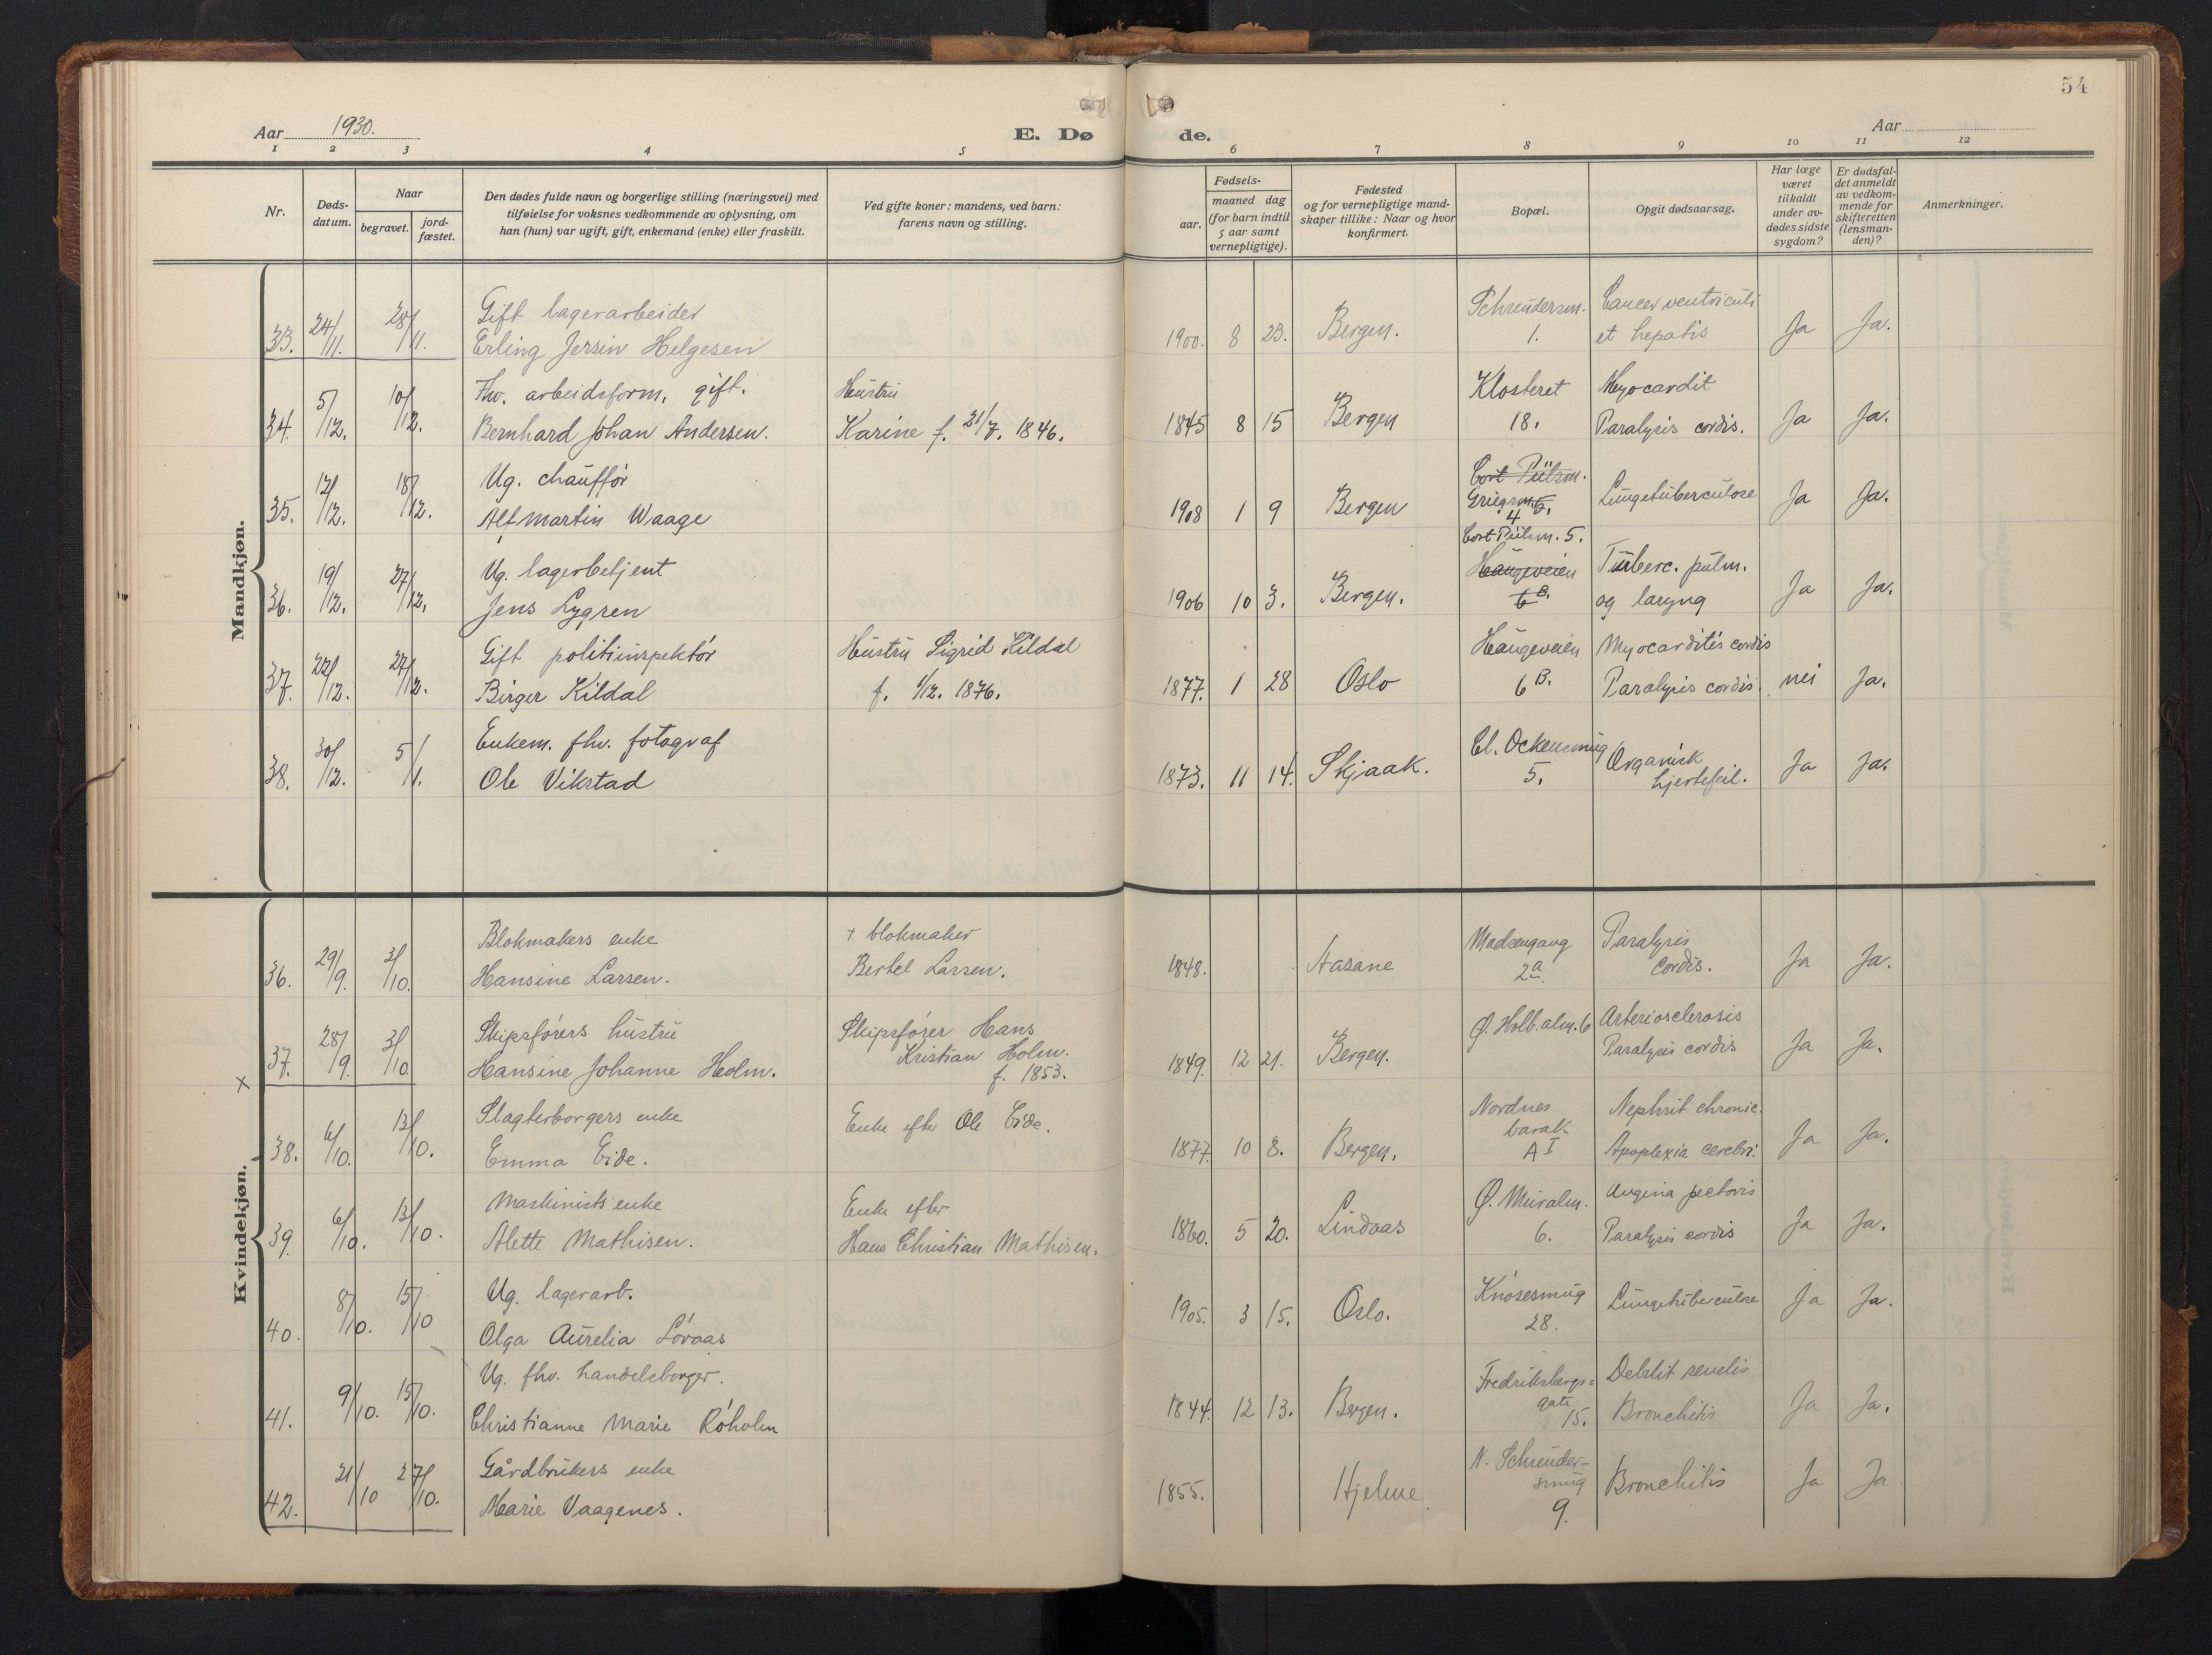 54
Aar 1930.
E. Dø de.
Aar
1 2 3 4 5 6 7 8 9 10 11 12
Nr.
Døds-
datum.
Naar
begravet.
jord-
fæstet.
Den dødes fulde navn og borgerlige stilling (næringsvei) med
tilføielse for voksnes vedkommende av oplysning, om
han (hun) var ugift, gift, enkemand (enke) eller fraskilt.
Ved gifte koner: mandens, ved barn:
farens navn og stilling.
Fødsels-
aar.
maaned dag
(for barn indtil
5 aar samt
vernepligtige).
Fødested
og for vernepligtige mand-
skaper tillike: Naar og hvor
konfirmert.
Bopæl.
Opgit dødsaarsag.
Har læge
været
tilkaldt
under av-
dødes sidste
sygdom?
Er dødsfal-
det anmeldt
av vedkom-
mende for
skifteretten
(lensman-
den)?
Anmerkninger.
Mandkjøn.
33. 24/11. 28/11.
Gift lagerarbeider
Erling Jersin Helgesen
1900. 8 23. Bergen.
Schreudersm.
1.
Cancer ventriculi
et hepatis
Ja Ja.
34. 5/12. 10/12.
Fhv. arbeidsform, gift.
Bernhard Johan Andersen.
Hustru
Karine f. 21/7. 1846.
1845 8 15 Bergen
Klosteret
18.
Myocardit
Paralysis cordis.
Ja Ja.
35. 12/12. 18/12.
Ug. chauffør
Alf Martin Waage
1908 1 9 Bergen
Cort Piilsm.
Griegsm. 5.
4
Lungetuberculose
Ja Ja.
36. 19/12. 27/12.
Ug. lagerbetjent
Jens Lygren
1906 10 3. Bergen.
Cort Piilsm. 5.
Haugeveien
6 B.
Tuberc. pulm.
og laryng
Ja Ja.
37. 22/12. 27/12.
Gift politiinspektør
Birger Kildal
Hustru Sigrid Kildal
f. 1/12. 1876.
1877. 1 28 Oslo
Haugeveien
6 B.
Myocarditis cordis
Paralysis cordis.
nei Ja.
38. 30/12. 5/1.
Enkem. fhv. fotograf
Ole Vikstad
1873. 11 14. Skjaak.
Cl. Ockensmug
5.
Organisk
hjertefeil.
Ja Ja.
Kvindekjøn.
36. 29/9. 3/10.
Blokmakers enke
Hansine Larsen.
+ blokmaker
Bertel Larsen.
1848. Aasane
Madsengang
2a.
Paralysis
Cordis.
Ja Ja.
x
37. 28/9. 3/10.
Skipsførers hustru
Hansine Johanne Holm.
Skipsfører Hans
Kristian Holm.
f. 1853.
1849. 12 21. Bergen.
Ø. Holb. alm. 6
Arteriosclerosis
Paralysis cordis
Ja Ja.
38. 6/10. 13/10.
Slagterborgers enke
Emma Eide.
Enke efter Ole Eide.
1877. 10 8. Bergen.
Nordnes
barak
A I
Nephrit chronic.
Apoplexia cerebri.
Ja Ja.
39. 6/10. 13/10.
Maskinists enke
Alette Mathisen.
Enke efter
Hans Christian Mathisen.
1860. 5 20. Lindaas
Ø. Muralm.
6.
Angina pectoris
Paralysis cordis
Ja Ja.
40. 8/10. 15/10
Ug. lagerarb.
Olga Aurelia Løvaas
1905. 3 15. Oslo.
Knøsesmug
28.
Lungetuberculose
Ja Ja.
41. 9/10. 15/10.
Ug. fhv. handelsborger.
Christianne Marie Røholm
1844. 12 13. Bergen.
Fredriksbergs=
gate
15.
Debilit senelis
Bronchitis
Ja Ja.
42. 21/10 27/10.
Gårdbrukers enke
Marie Vaagenes.
1855. Hjelme
N. Schreuder-
smug
9.
Bronchitis
Ja Ja